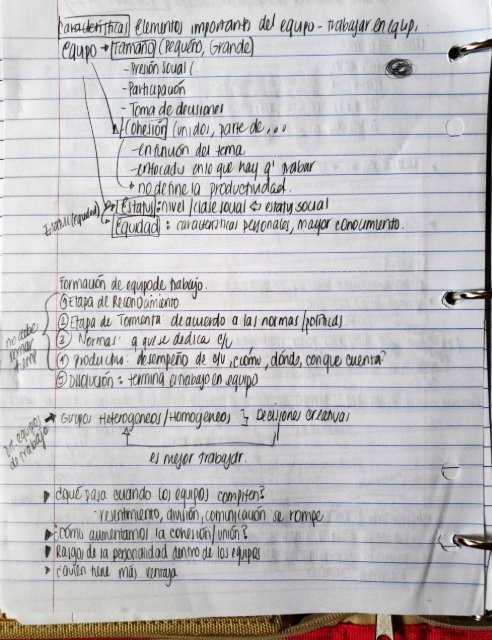 Características Elementos importants del equipo - trabajar en equip.
equipo → Tamaño (pequeño, Grande)
- Presión social (
- Participación
- Toma de decisiones
Cohesión (unidos, parte de...
- en función del tema
- enfocado en lo que hay q' trabar
no define la productividad.
Estatus: nivel / clase social ⇔ estatu social
Estatus (equidad)
Equidad: características personales, mayor conocimiento.
Formación de equipo de trabajo.
① Etapa de Reconocimiento
② Etapa de Tormenta: de acuerdo a las normas/políticas
③ Normas: a que se dedica c/u
④ productivo: desempeño de c/u, cómo, dónde, con que cuenta?
⑤ Disolución: termina el trabajo en equipo
no debo
→ Grupos Heterogeneos/Homogeneos } Decisiones Creativas
de equipos
de trabajo
es mejor trabajar.
▶ ¿Qué pasa cuando los equipos compiten?
- resentimiento, división, comunicación se rompe
▶ ¿Cómo aumentamos la cohesión/unión?
▶ Rasgos de la personalidad dentro de los equipos
▶ ¿Quién tiene más ventaja